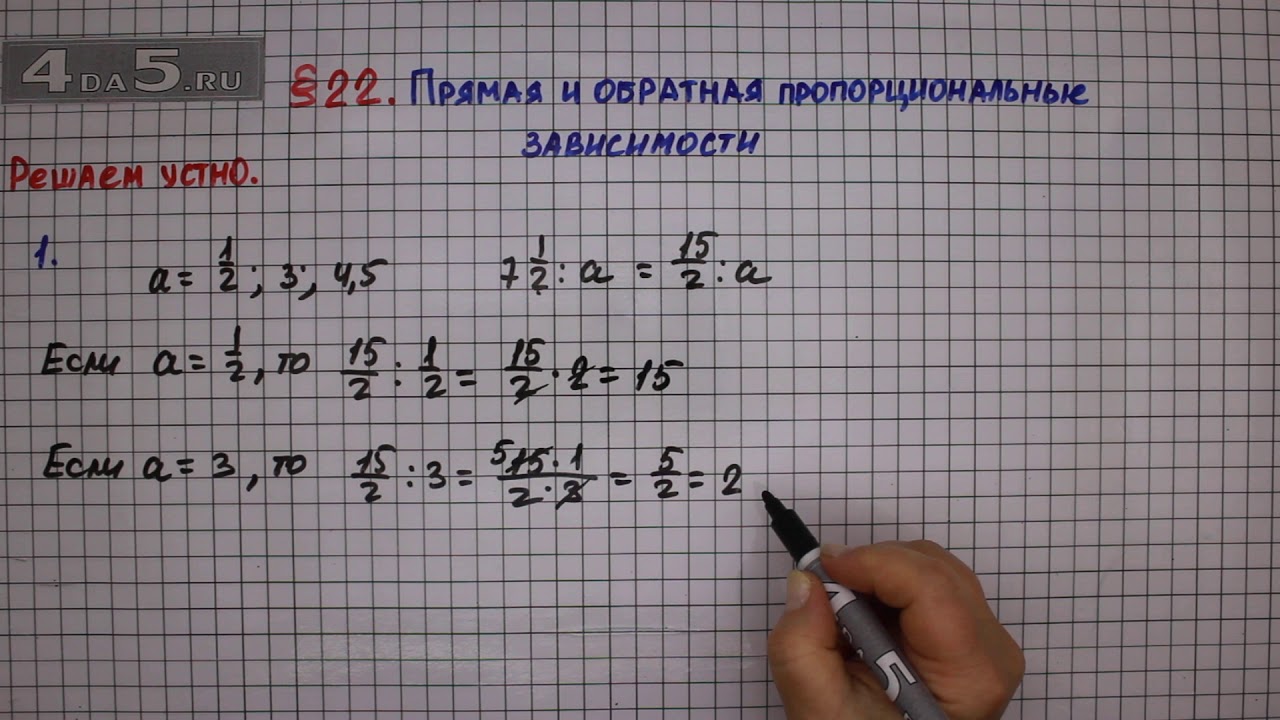 4DA5.RU
§22. Прямая и обратная пропорциональные
зависимости
Решаем устно.
1. a = 1/2; 3; 4,5 7 1/2 : a = 15/2 : a
Если a = 1/2, то 15/2 : 1/2 = 15/2 · 2 = 15
Если a = 3, то 15/2 : 3 = 5 15 · 1 / 2 · 3 = 5/2 = 2
5